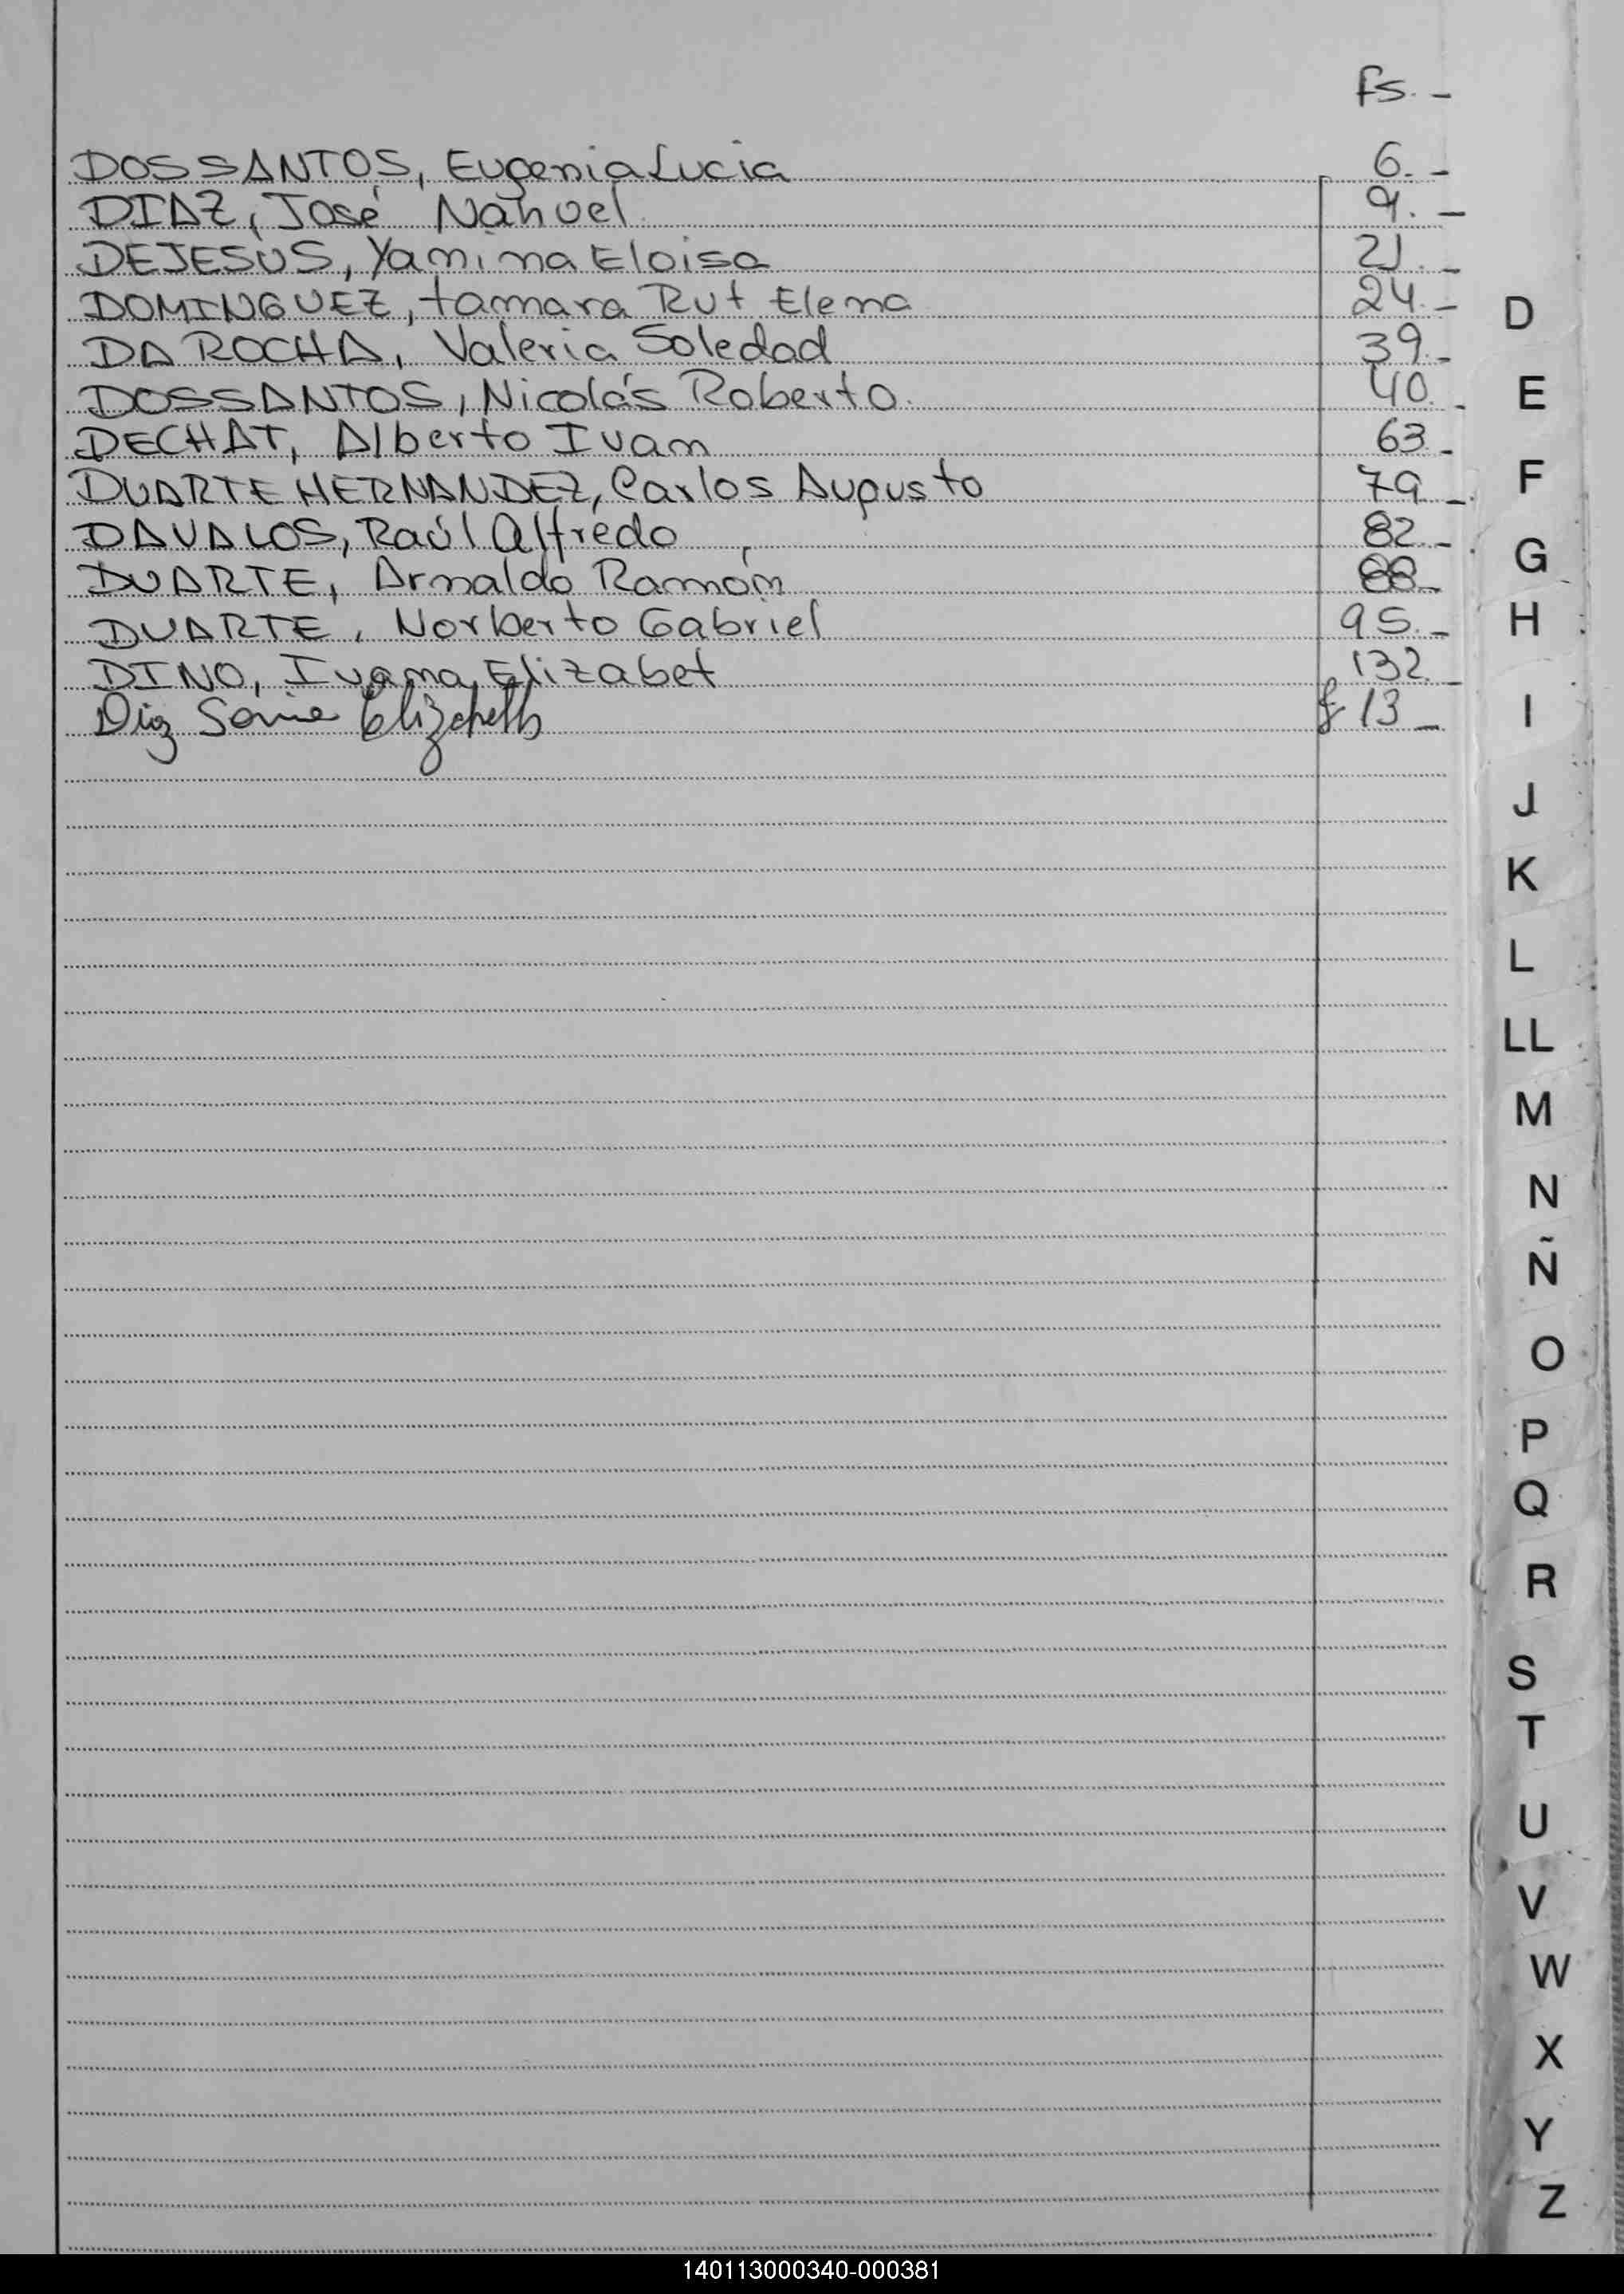 fs. -
DOS SANTOS, Eugenia Lucia 6. -
DIAZ, José Nahuel 9. -
DEJESUS, Yamina Eloisa 21. -
DOMINGUEZ, tamara Rut Elena 24. -
DA ROCHA, Valeria Soledad 39. -
DOSSANTOS, Nicolás Roberto. 40. -
DECHAT, Alberto Ivan 63. -
DUARTE HERNANDEZ, Carlos Augusto 79. -
DAVALOS, Raúl Alfredo 82. -
DUARTE, Arnaldo Ramón 88. -
DUARTE, Norberto Gabriel 95. -
DINO, Ivana Elizabet 132. -
Diaz Sonia Elizabeth f 13 -
D
E
F
G
H
I
J
K
L
LL
M
N
Ñ
O
P
Q
R
S
T
U
V
W
X
Y
Z
140113000340-000381